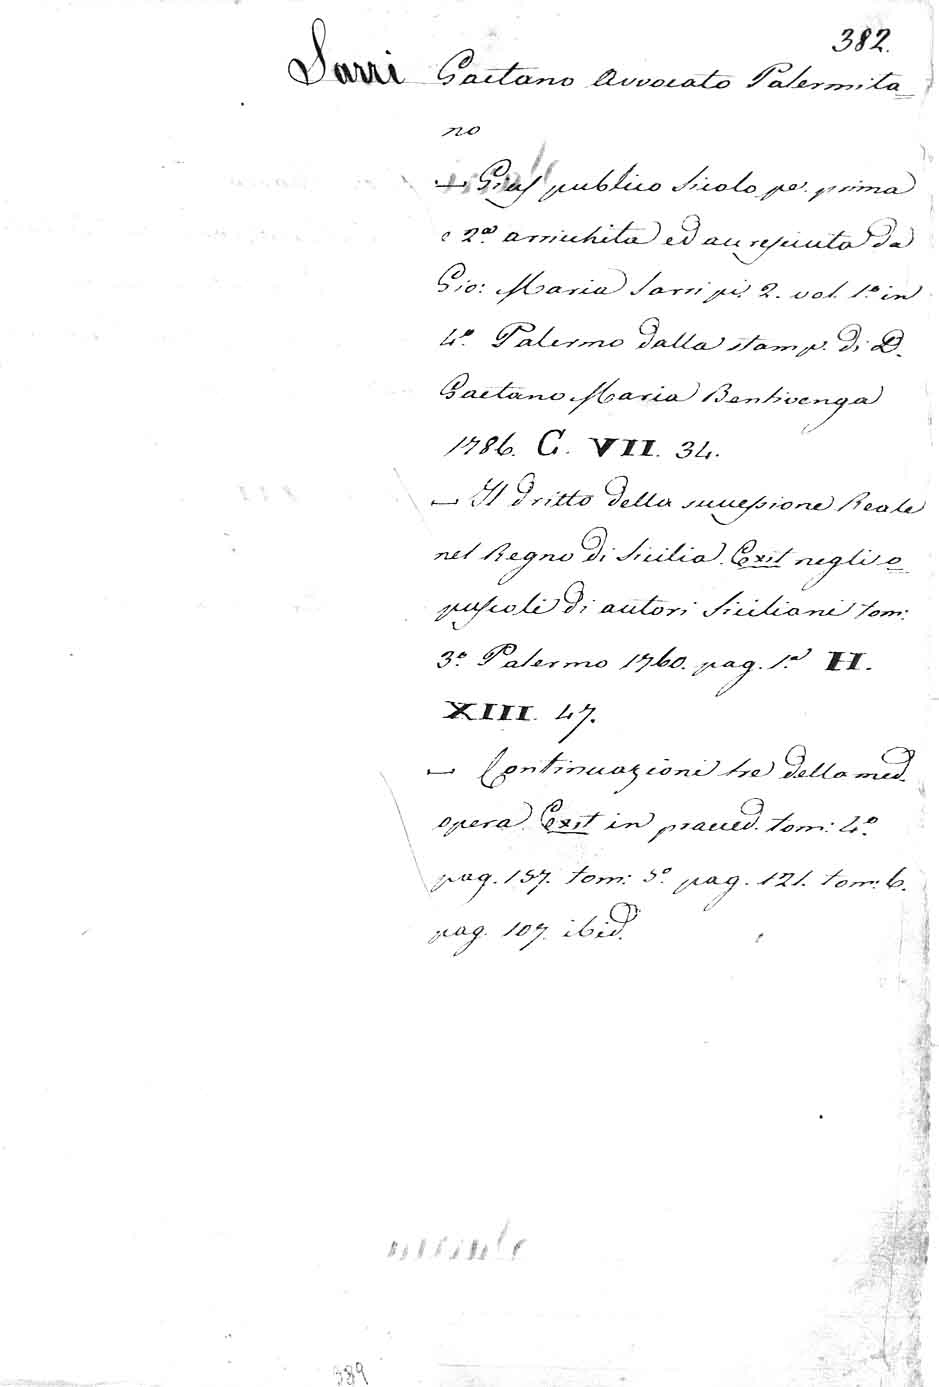 382.
Sarri Gaetano Avvocato Palermita=
no
— Gius publico Sicolo pe. prima
e 2.a arricchita ed accresciuta da
Gio: Maria Sarri pi. 2. vol. 1.o in
4.o Palermo dalla stamp. di D.
Gaetano Maria Bentivenga
1786. G. VII. 34.
— Il dritto della successione Reale
nel Regno di Sicilia. Exit negli o=
puscoli di autori Siciliani tom:
3.o Palermo 1760. pag. 1.a H.
XIII. 47.
— Continuazioni tre della med.
opera. Exit in praeced. tom: 4.o
pag. 157. tom: 5.o pag. 121. tom: 6.
pag. 107. ibid.
389